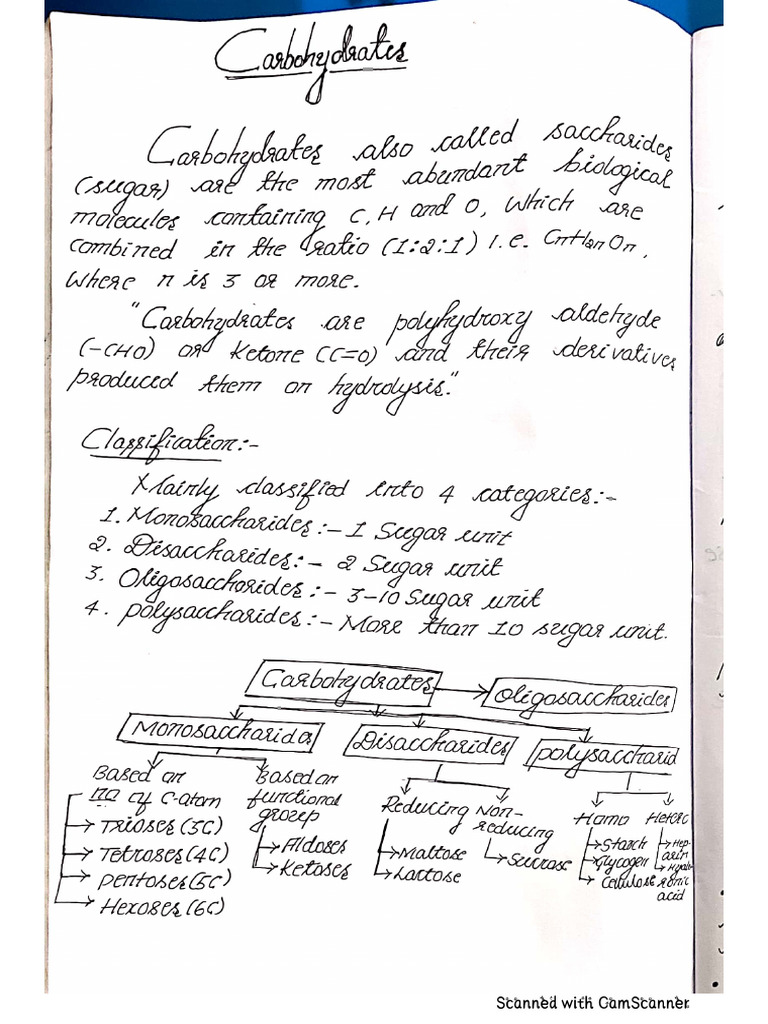 Carbohydrates
Carbohydrates also called saccharides
(sugar) are the most abundant biological
molecules containing C, H and O, which are
combined in the ratio (1:2:1) i.e. CnH2nOn,
where n is 3 or more.
"Carbohydrates are polyhydroxy aldehyde
(-CHO) or Ketone (C=O) and their derivatives
produced them on hydrolysis."
Classification:-
Mainly classified into 4 categories:-
1. Monosaccharides:- 1 Sugar unit
2. Disaccharides:- 2 Sugar unit
3. Oligosaccharides:- 3-10 Sugar unit
4. polysaccharides:- More than 10 sugar unit.
Carbohydrates
Oligosaccharides
Monosaccharides
Disaccharides
polysaccharid
Based on
no of C-atom
Trioses (3C)
Tetroses (4C)
pentoses (5C)
Hexoses (6C)
Based on
functional
group
Aldoses
Ketoses
Reducing
Maltose
Lactose
Non-
reducing
Sucrose
Homo
Starch
Glycogen
Cellulose
Hetero
Hep-
arin
Hyalu-
ronic
acid
Scanned with CamScanner